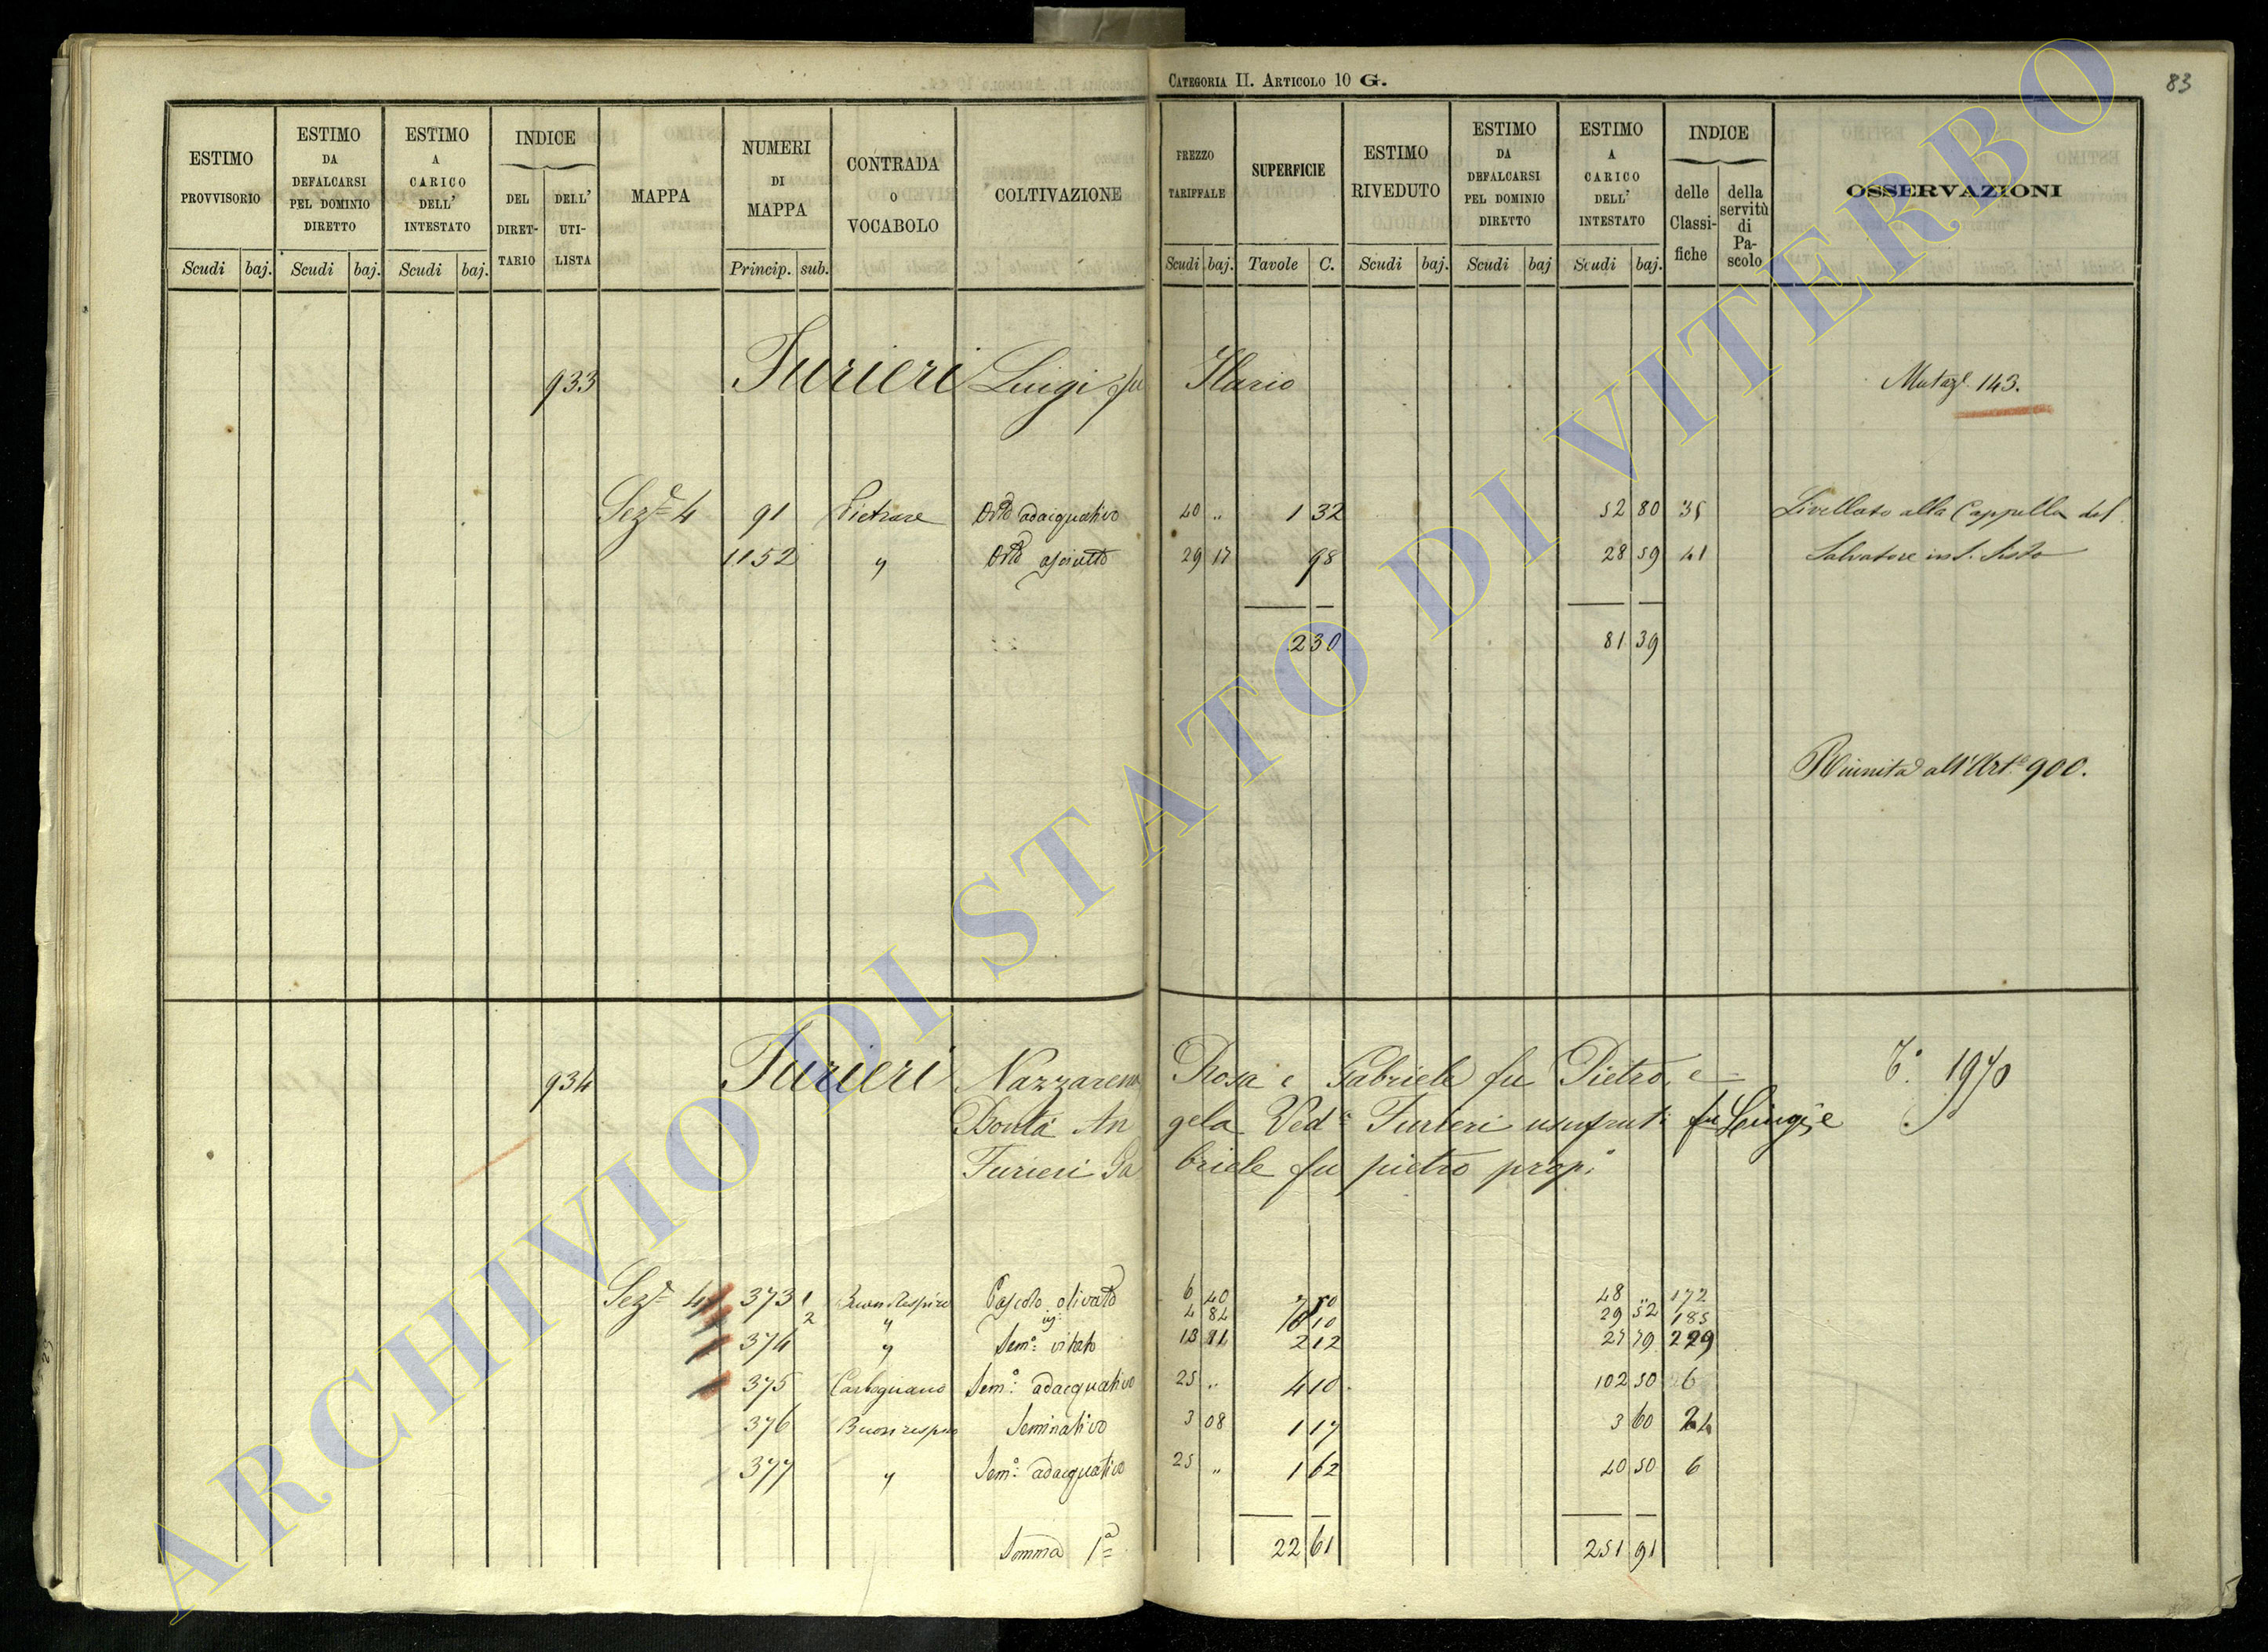 Categoria II. Articolo 10 G.
83
ESTIMO PROVVISORIO
Scudi baj.
ESTIMO DA DEFALCARSI PEL DOMINIO DIRETTO
Scudi baj.
ESTIMO A CARICO DELL' INTESTATO
Scudi baj.
INDICE
DEL DIRET-TARIO
DELL' UTI-LISTA
MAPPA
NUMERI DI MAPPA
Princip. sub.
CONTRADA O VOCABOLO
COLTIVAZIONE
PREZZO TARIFFALE
Scudi baj.
SUPERFICIE
Tavole C.
ESTIMO RIVEDUTO
Scudi baj.
ESTIMO DA DEFALCARSI PEL DOMINIO DIRETTO
Scudi baj
ESTIMO A CARICO DELL' INTESTATO
Scudi baj.
INDICE
delle Classi-fiche
della servitù di Pa-scolo
OSSERVAZIONI
933 Furieri Luigi fu Ilario Mutaze. 143.
Seze 4 91 Pietrare Orto adacquativo 40 „ 1 32 52 80 35 Livellato alla Cappella del
1152 „ Orto asciutto 29 17 98 28 59 41 Salvatore in S. Sisto
2 30 81 39
Riunita all'Arte. 900.
934 Furieri Nazzareno, Rosa e Gabriele fu Pietro, e T. 1970
Bonta An gela Veda Furieri usufrut: fu Luigi, e
Furieri Ga briele fu pietro prop:
Seze 4 373 1 Buon Respiro Pascolo olivato 6 40 7 50 48 „ 172
2 „ 4 84 6 10 29 52 185
374 „ Semo: vitato 13 11 2 12 27 79 229
375 Carbognano Semo: adacquativo 25 „ 4 10 102 50 6
376 Buon respiro Seminativo 3 08 1 17 3 60 24
377 „ Semo: adacquativo 25 „ 1 62 40 50 6
Somma 1a 22 61 251 91
ARCHIVIO DI STATO DI VITERBO